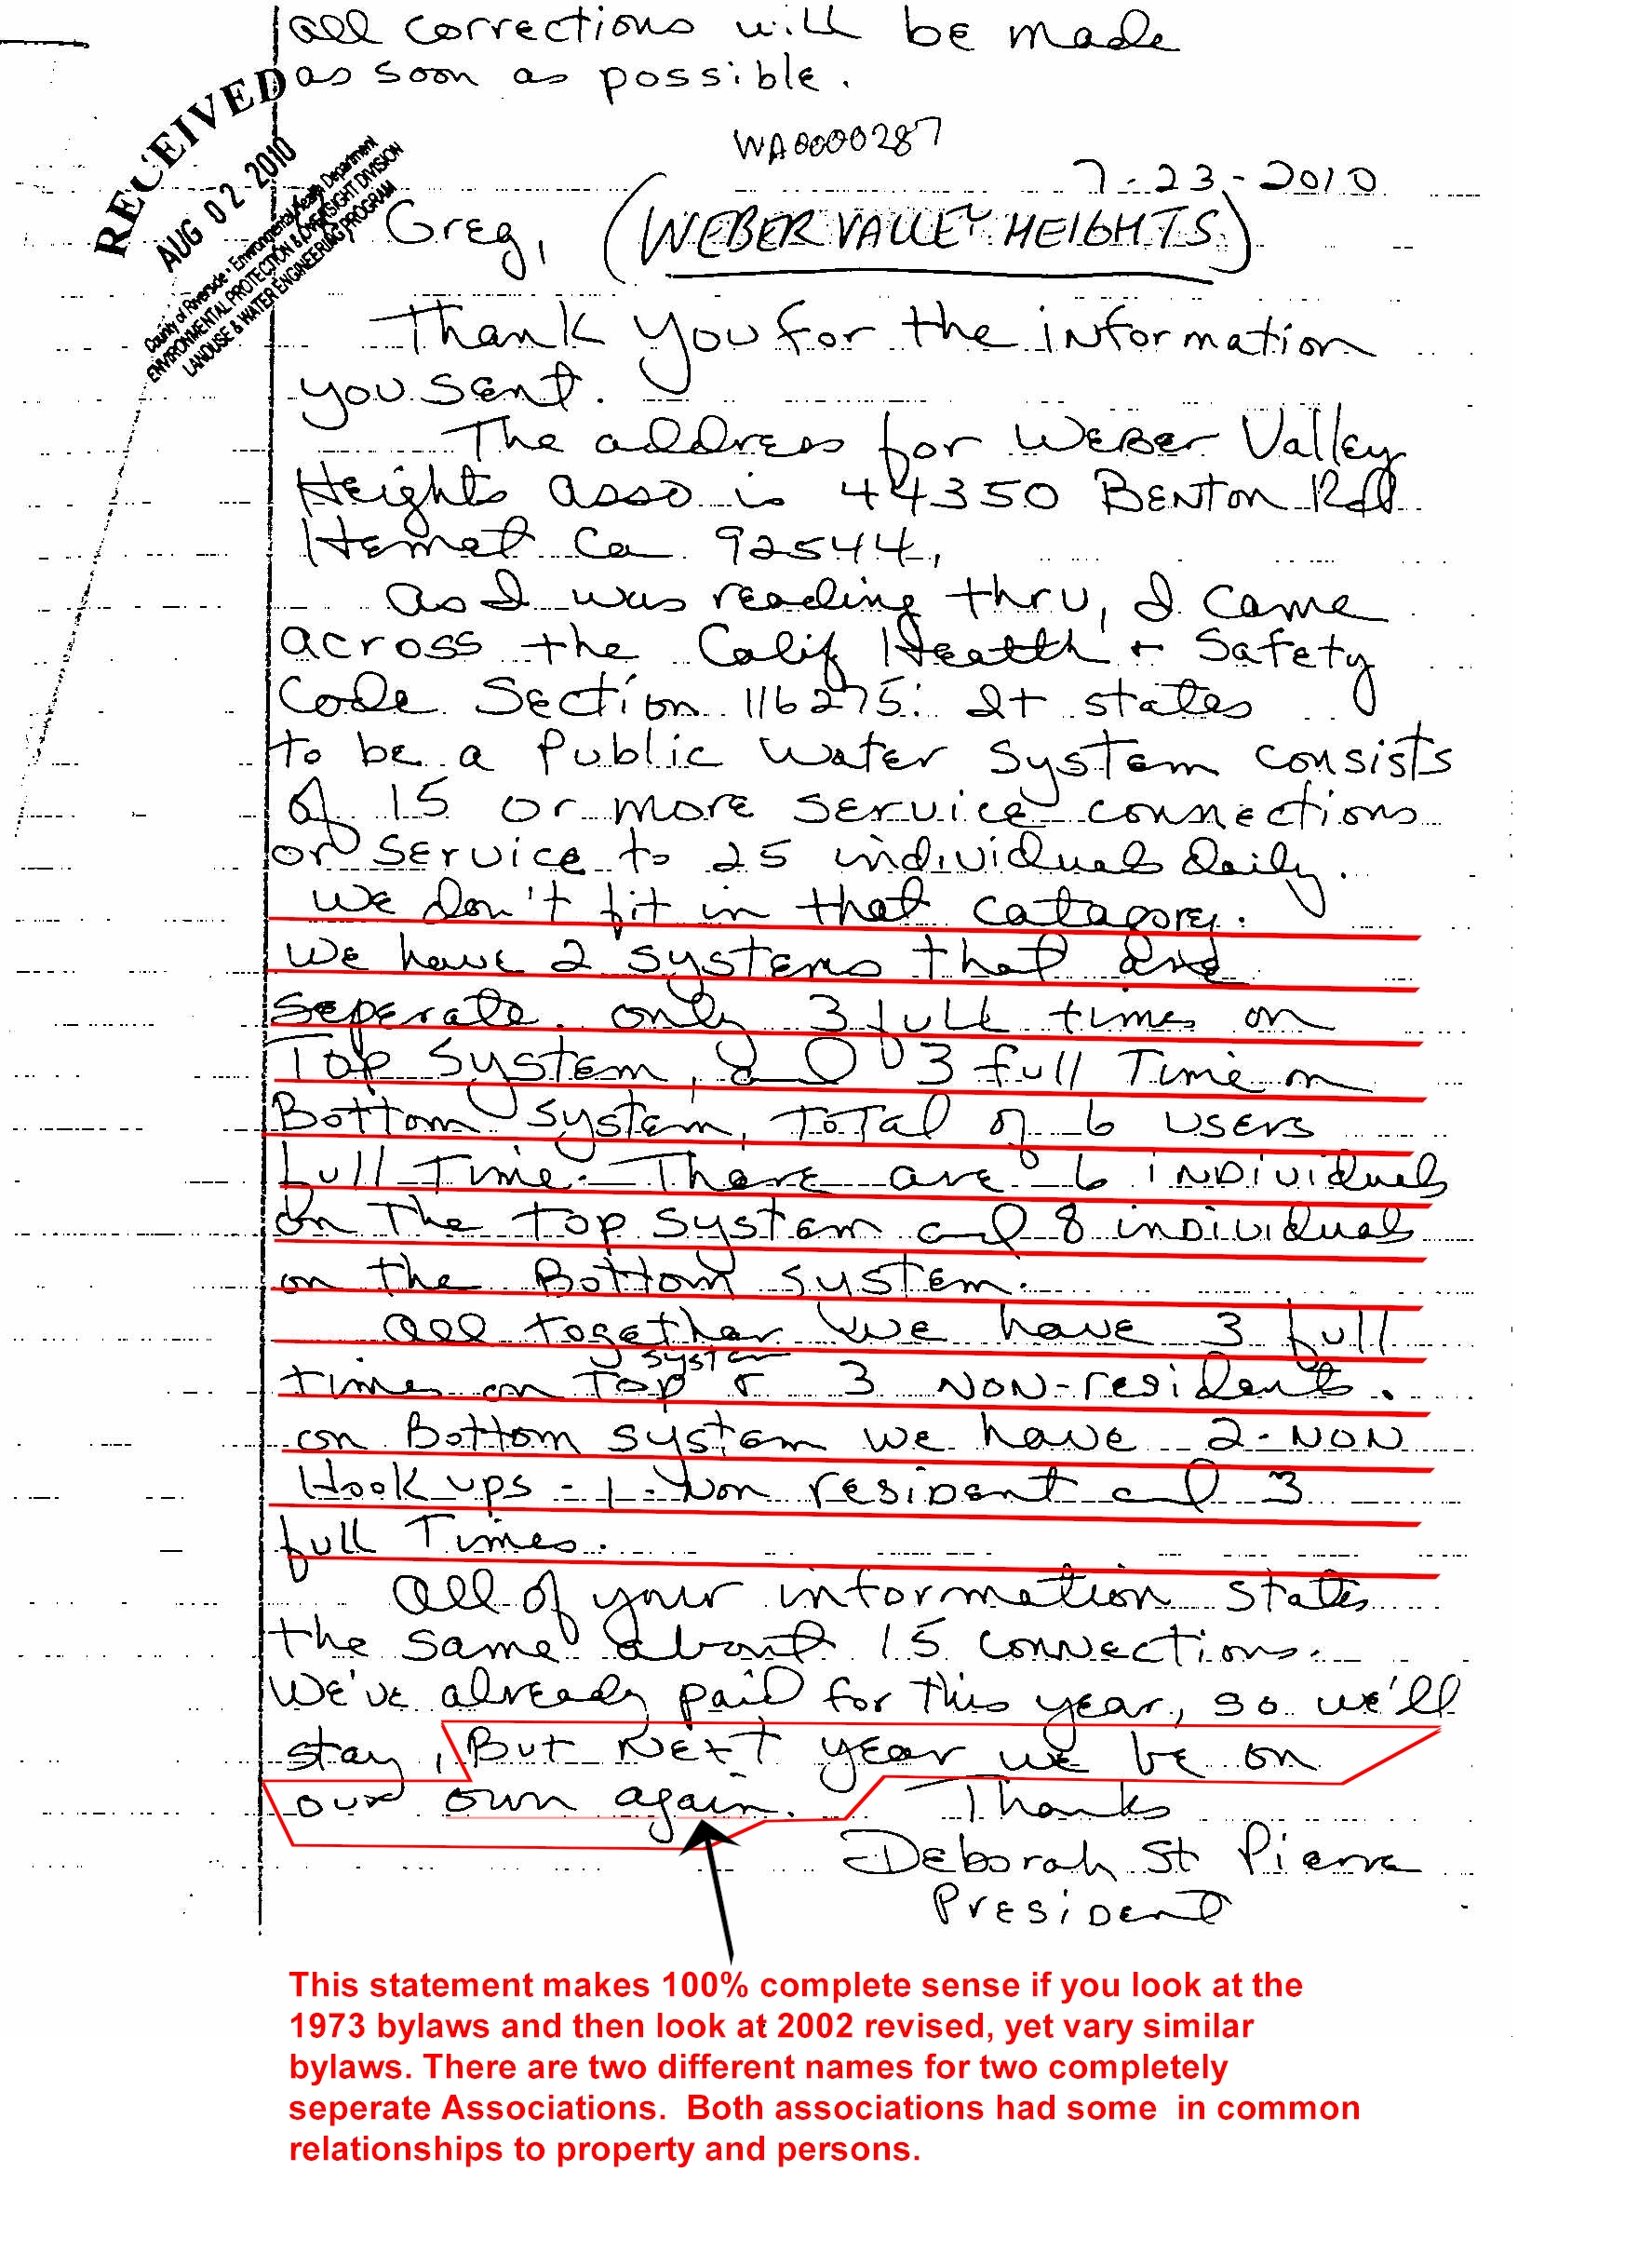 all corrections will be made
as soon as possible.
RECEIVED
AUG 02 2010
County of Riverside • Environmental Health Department
ENVIRONMENTAL PROTECTION & OVERSIGHT DIVISION
LANDUSE & WATER ENGINEERING PROGRAM
WA0000287
7-23-2010
Greg, (WEBER VALLEY HEIGHTS)
Thank you for the information
you sent.
The address for Weber Valley
Heights asso is 44350 Benton Rd
Hemet Ca 92544,
as I was reading thru, I came
across the Calif Health + Safety
Code Section 116275: It states
to be a Public Water System consists
of 15 or more service connections
or service to 25 individuals daily.
We don't fit in that catagory.
We have 2 systems that are
seperate. only 3 full times on
Top System, and 3 full Time on
Bottom system, Total of 6 users
full Time. There are 6 individuals
on The top system and 8 individuals
on the Bottom system.
all together we have 3 full
times on Top system & 3 NON-residents.
on Bottom system we have 2-NON
Hook ups - 1-Non resident and 3
full Times.
all of your information states
the same about 15 connections.
We've already paid for this year, so we'll
stay, But Next year we be on
our own again. Thanks
Deborah St Pierre
President
This statement makes 100% complete sense if you look at the
1973 bylaws and then look at 2002 revised, yet vary similar
bylaws. There are two different names for two completely
seperate Associations.  Both associations had some  in common
relationships to property and persons.